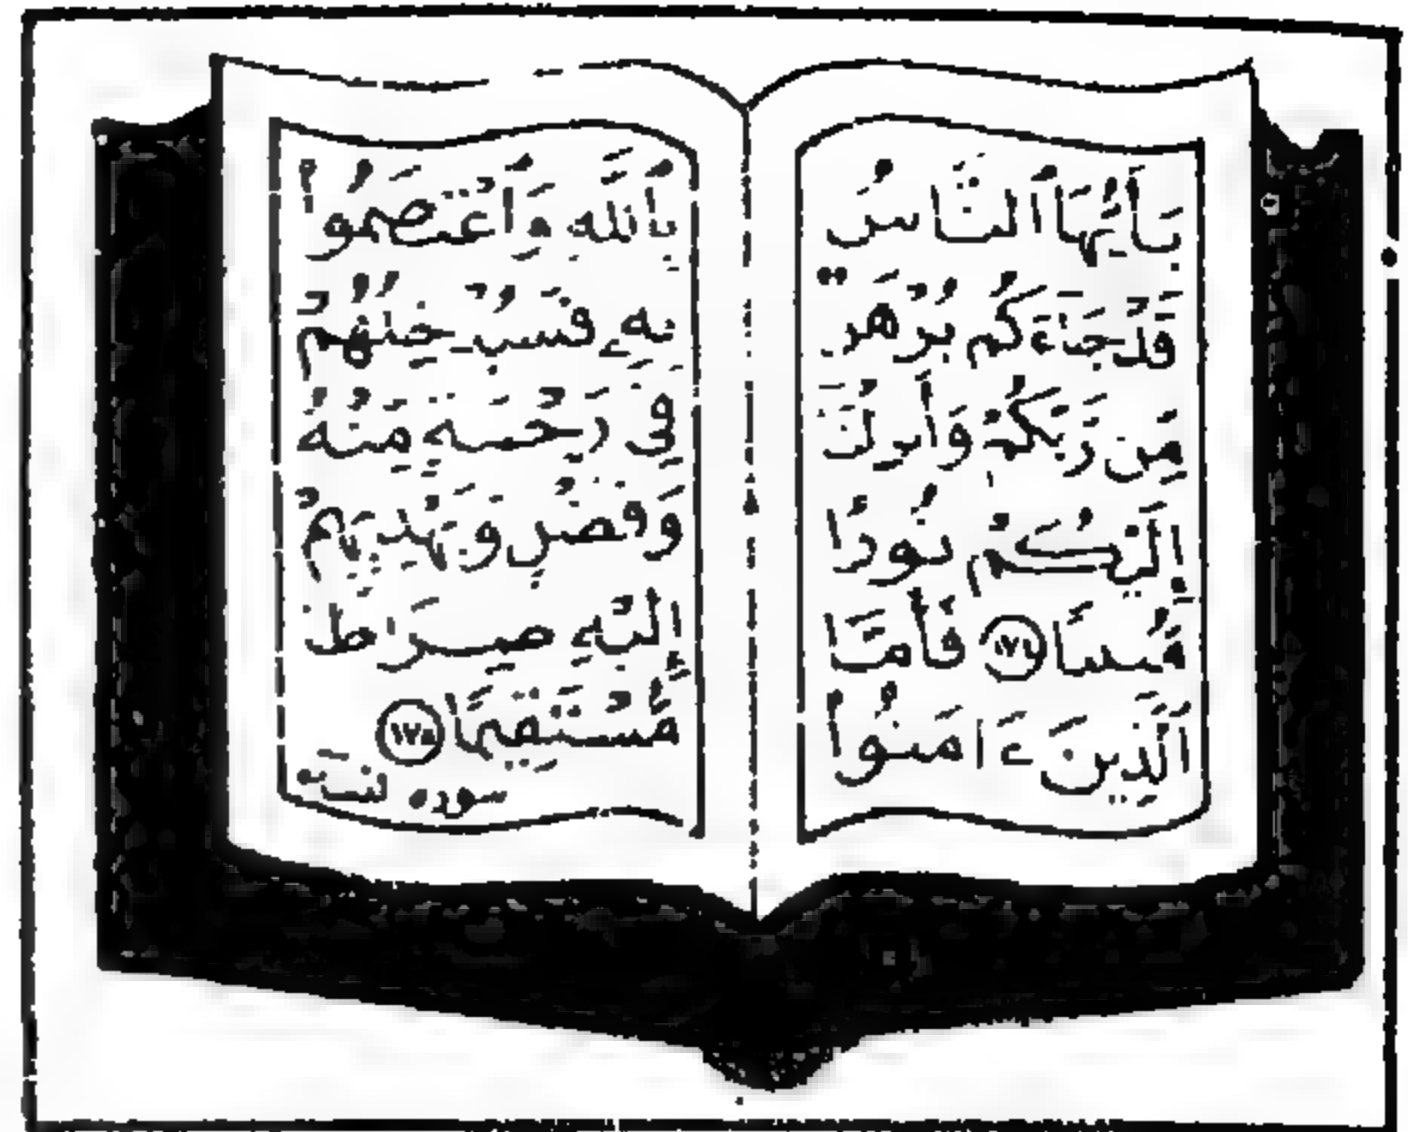 يَـٰأَيُّهَا ٱلنَّاسُ
قَدْ جَآءَكُم بُرْهَـٰنٌ
مِّن رَّبِّكُمْ وَأَنزَلْنَآ
إِلَيْكُمْ نُورًا
مُّبِينًا ١٧٤ فَأَمَّا
ٱلَّذِينَ ءَامَنُوا۟
بِٱللَّهِ وَٱعْتَصَمُوا۟
بِهِۦ فَسَيُدْخِلُهُمْ
فِى رَحْمَةٍ مِّنْهُ
وَفَضْلٍ وَيَهْدِيهِمْ
إِلَيْهِ صِرَٰطًا
مُّسْتَقِيمًا ١٧٥
سوره نساء